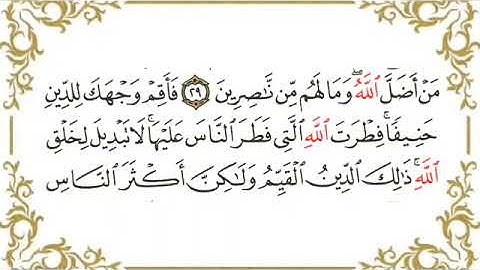 مَنْ أَضَلَّ ٱللَّهُۖ وَمَا لَهُم مِّن نَّـٰصِرِينَ ٢٩ فَأَقِمْ وَجْهَكَ لِلدِّينِ
حَنِيفًاۚ فِطْرَتَ ٱللَّهِ ٱلَّتِى فَطَرَ ٱلنَّاسَ عَلَيْهَاۚ لَا تَبْدِيلَ لِخَلْقِ
ٱللَّهِۚ ذَٰلِكَ ٱلدِّينُ ٱلْقَيِّمُ وَلَـٰكِنَّ أَكْثَرَ ٱلنَّاسِ